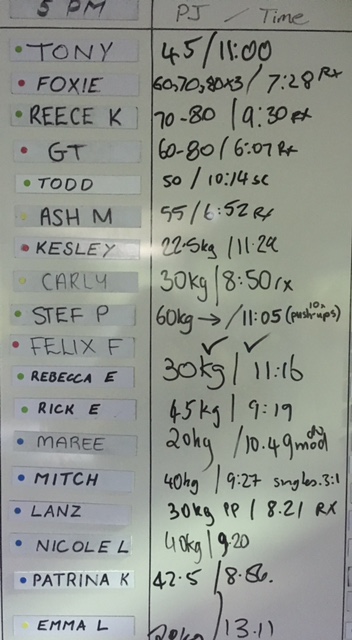 5 PM PJ / Time
TONY 45/11:00
FOXIE 60,70,80x3/7:28 Rx
REECE K 70-80 / 9:30 Rx
GT 60-80/6:07 Rx
TODD 50/10:14 sc
ASH M 55/6:52 Rx
KESLEY 22.5kg/11:29
CARLY 30kg/8:50 rx
STEF P 60kg → /11:05 (10x push-ups)
FELIX F ✓ ✓
REBECCA E 30kg/11:16
RICK E 45kg/9:19
MAREE 20kg /10.49 mod
MITCH 40kg/9:27 singles.3:1
LANZ 30kg PP/8.21 RX
NICOLE L 40kg/9.20
PATRINA K 42.5/8.56.
EMMA L /13.11